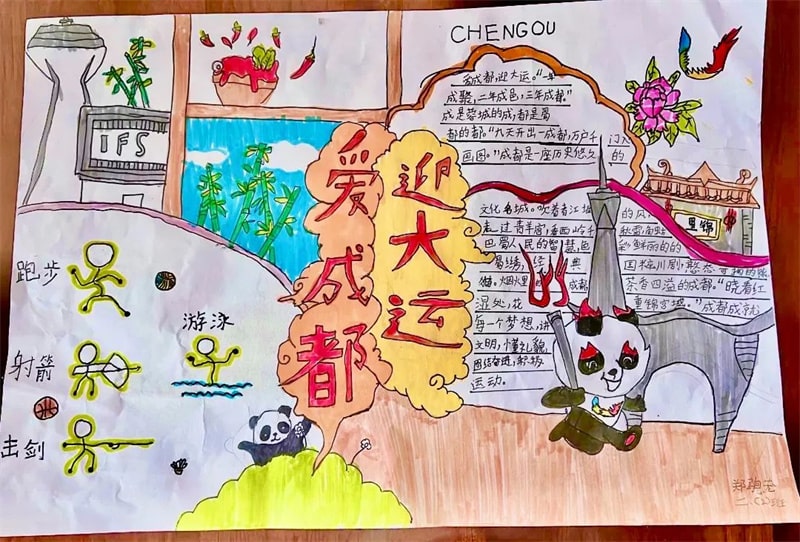 CHENGOU
IFS
爱成都
迎大运
爱成都,迎大运。“一年
成聚,二年成邑,三年成都。”
成是蓉城的成,都是蜀
都的都。“九天开出一成都,万户千门入
画图。”成都是一座历史悠久的
文化名城。吹着着江堰的风,
走过青羊宫,看西岭千秋雪,
巴蜀人民的智慧,色彩鲜丽的的
蜀绣,经典国粹川剧,憨态可掬的熊
猫,烟火里的成都
茶香四溢的成都。“晓看红
湿处,花重锦官城。”成都成就
每一个梦想,讲
文明,懂礼貌,
团结奋进,积极
运动。
里锦
跑步
游泳
射箭
击剑
二、(2)班